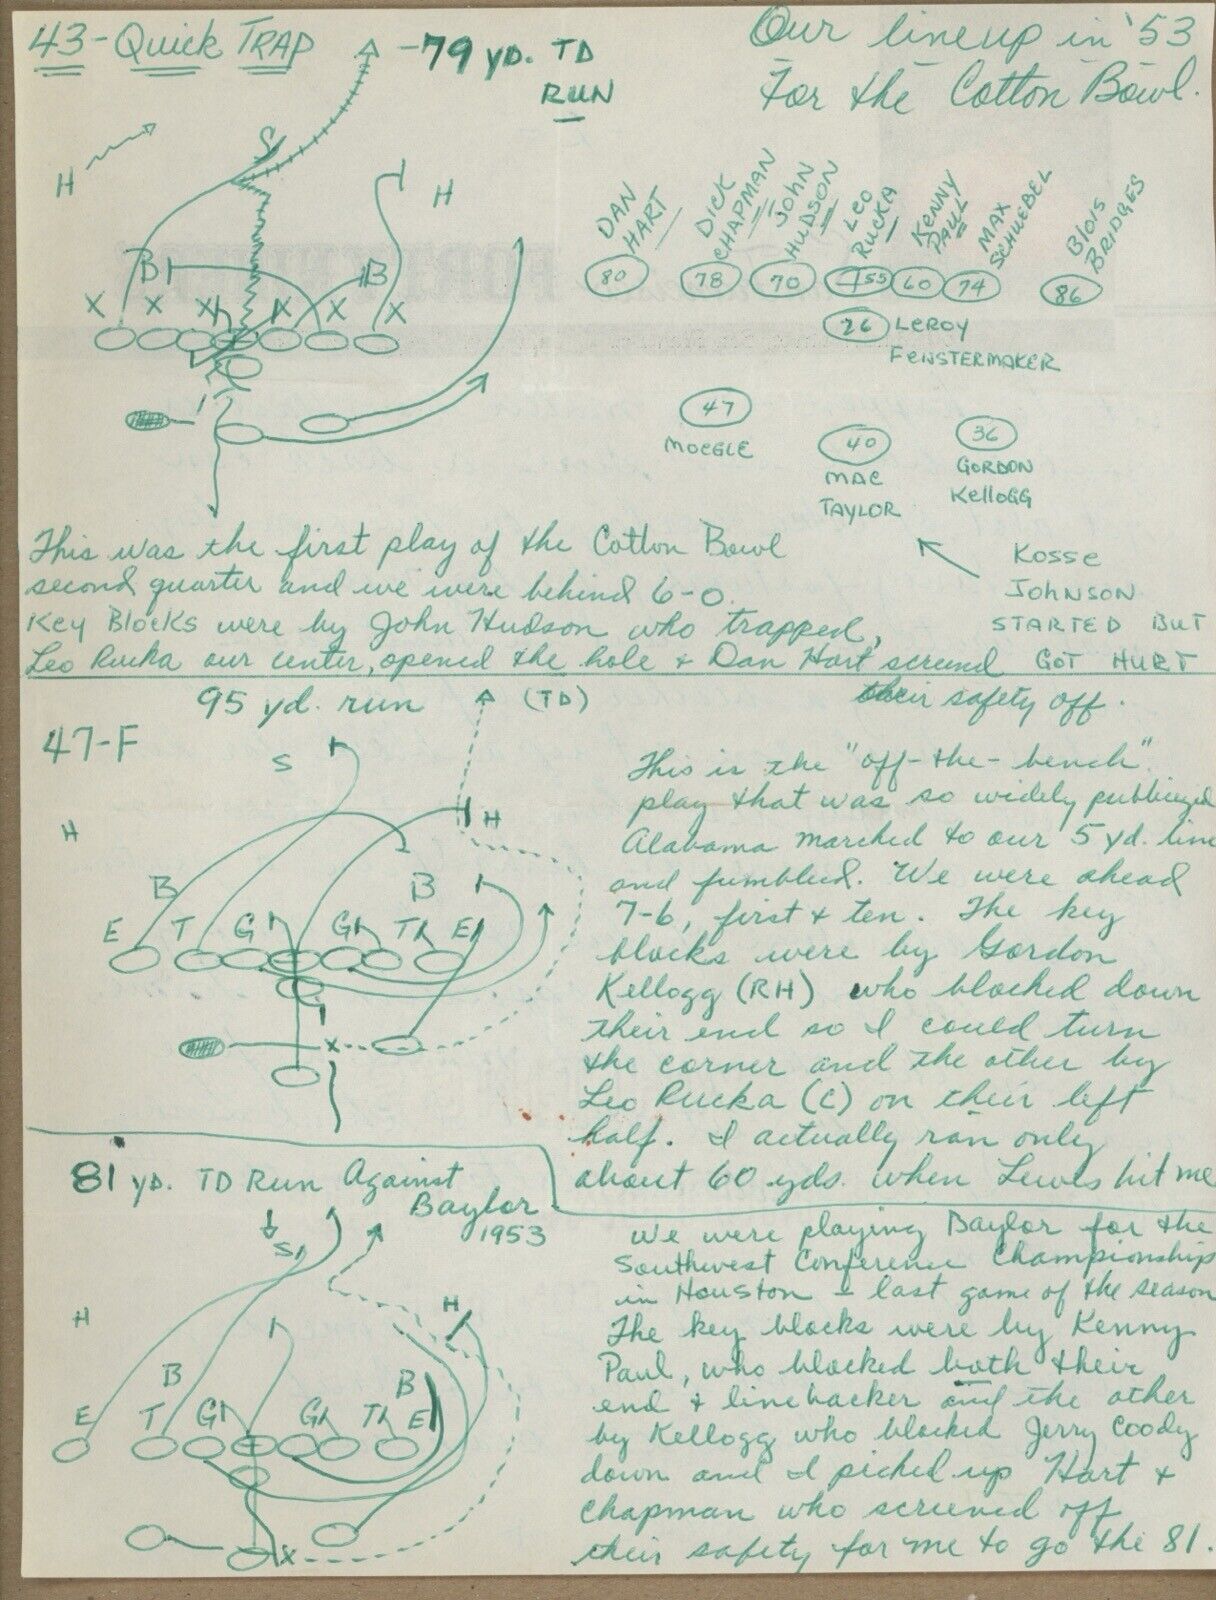 43-Quick TRAP
-79 yd. TD
RUN
Our lineup in '53
For the Cotton Bowl.
H
S
H
B
B
X X X X X X
DAN HART
DICK CHAPMAN
JOHN HUDSON
LEO RUCKA
KENNY PAUL
MAX SCHUEBEL
BLOIS BRIDGES
80 78 70 55 60 74 86
26 LEROY
FENSTERMAKER
47
MOEGLE
40
MAC
TAYLOR
36
GORDON
KELLOGG
KOSSE
JOHNSON
STARTED BUT
GOT HURT
This was the first play of the Cotton Bowl
second quarter and we were behind 6-0.
Key Blocks were by John Hudson who trapped,
Leo Rucka our center, opened the hole + Dan Hart screend
their safety off.
95 yd. run
(TD)
47-F
S
H
H
B
B
E T G G T E
X
This is the "off-the-bench"
play that was so widely publicized
Alabama marched to our 5 yd. line
and fumbled. We were ahead
7-6, first + ten. The key
blocks were by Gordon
Kellogg (RH) who blocked down
their end so I could turn
the corner and the other by
Leo Rucka (C) on their left
half. I actually ran only
about 60 yds. when Lewis hit me
81 yd. TD Run Against
Baylor
1953
S
H
H
B
B
E T G G T E
X
We were playing Baylor for the
Southwest Conference Championship
in Houston - last game of the season
The key blocks were by Kenny
Paul, who blocked both their
end + linebacker and the other
by Kellogg who blocked Jerry Coody
down and I picked up Hart +
Chapman who screened off
their safety for me to go the 81.